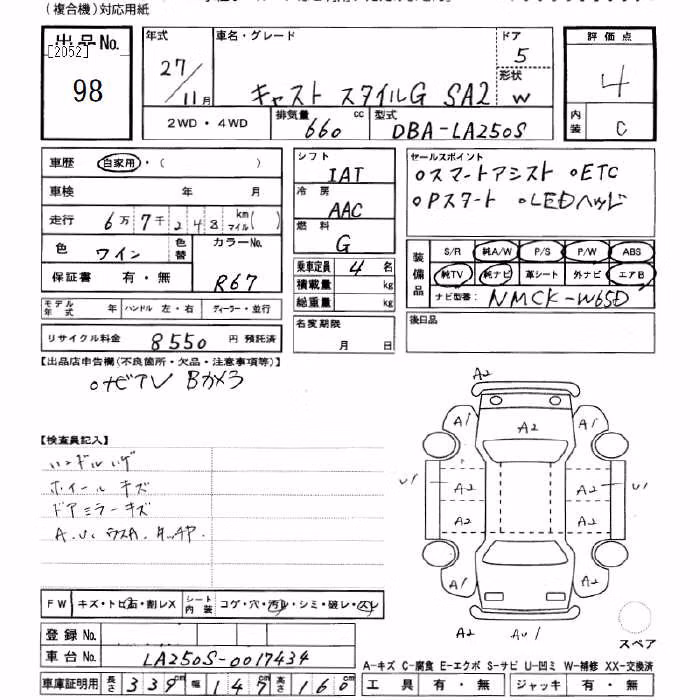 (複合機)対応用紙
出品No. 98
[2052]
年式 27/11月
車名・グレード キャスト スタイルG SA2
ドア 5
形状 W
2WD・4WD
排気量 660 cc
型式 DBA-LA250S
評価点 4
内装 C
車歴 自家用・( )
車検 年 月
走行 6万7千248 km マイル( )
色 ワイン
色替
カラーNo. R67
保証書 有・無
モデル年式 年
ハンドル 左・右
ディーラー・並行
リサイクル料金 8550 円 預託済
シフト IAT
冷房 AAC
燃料 G
乗車定員 4 名
積載量 kg
総重量 kg
名変期限 月 日
セールスポイント
○スマートアシスト ○ETC
○Pスタート ○LEDヘッド
装備品
S/R 純A/W P/S P/W ABS
純TV 純ナビ 革シート 外ナビ エアB
ナビ型番: NMCK-W65D
後日品
【出品店申告欄(不良箇所・欠品・注意事項等)】
○ナビTV Bカメラ
【検査員記入】
ハンドルハゲ
ホイール キズ
ドアミラーキズ
A.U. ウスA. タッチP.
A2
A1 A2 A1
U1 A2 A2 U1
A2 A2
A1 A2
A2 AU1
スペア
FW キズ・トビ石・割レX
シート内装 コゲ・穴・汚レ・シミ・破レ・スレ
登録No.
車台No. LA250S-0017434
車庫証明用 長さ 339cm 幅 147cm 高さ 160cm
A-キズ C-腐食 E-エクボ S-サビ U-凹ミ W-補修 XX-交換済
工具 有・無 ジャッキ 有・無